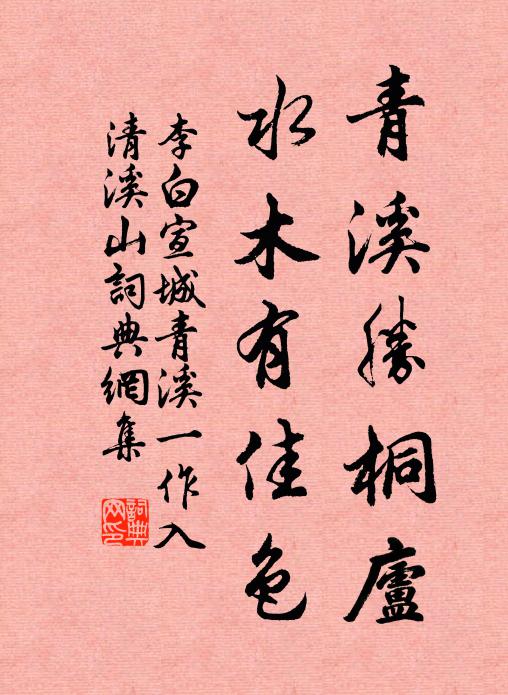 青溪勝桐廬
水木有佳色
李白宣城青溪一作入
清溪山詞典網集
詞典
网印